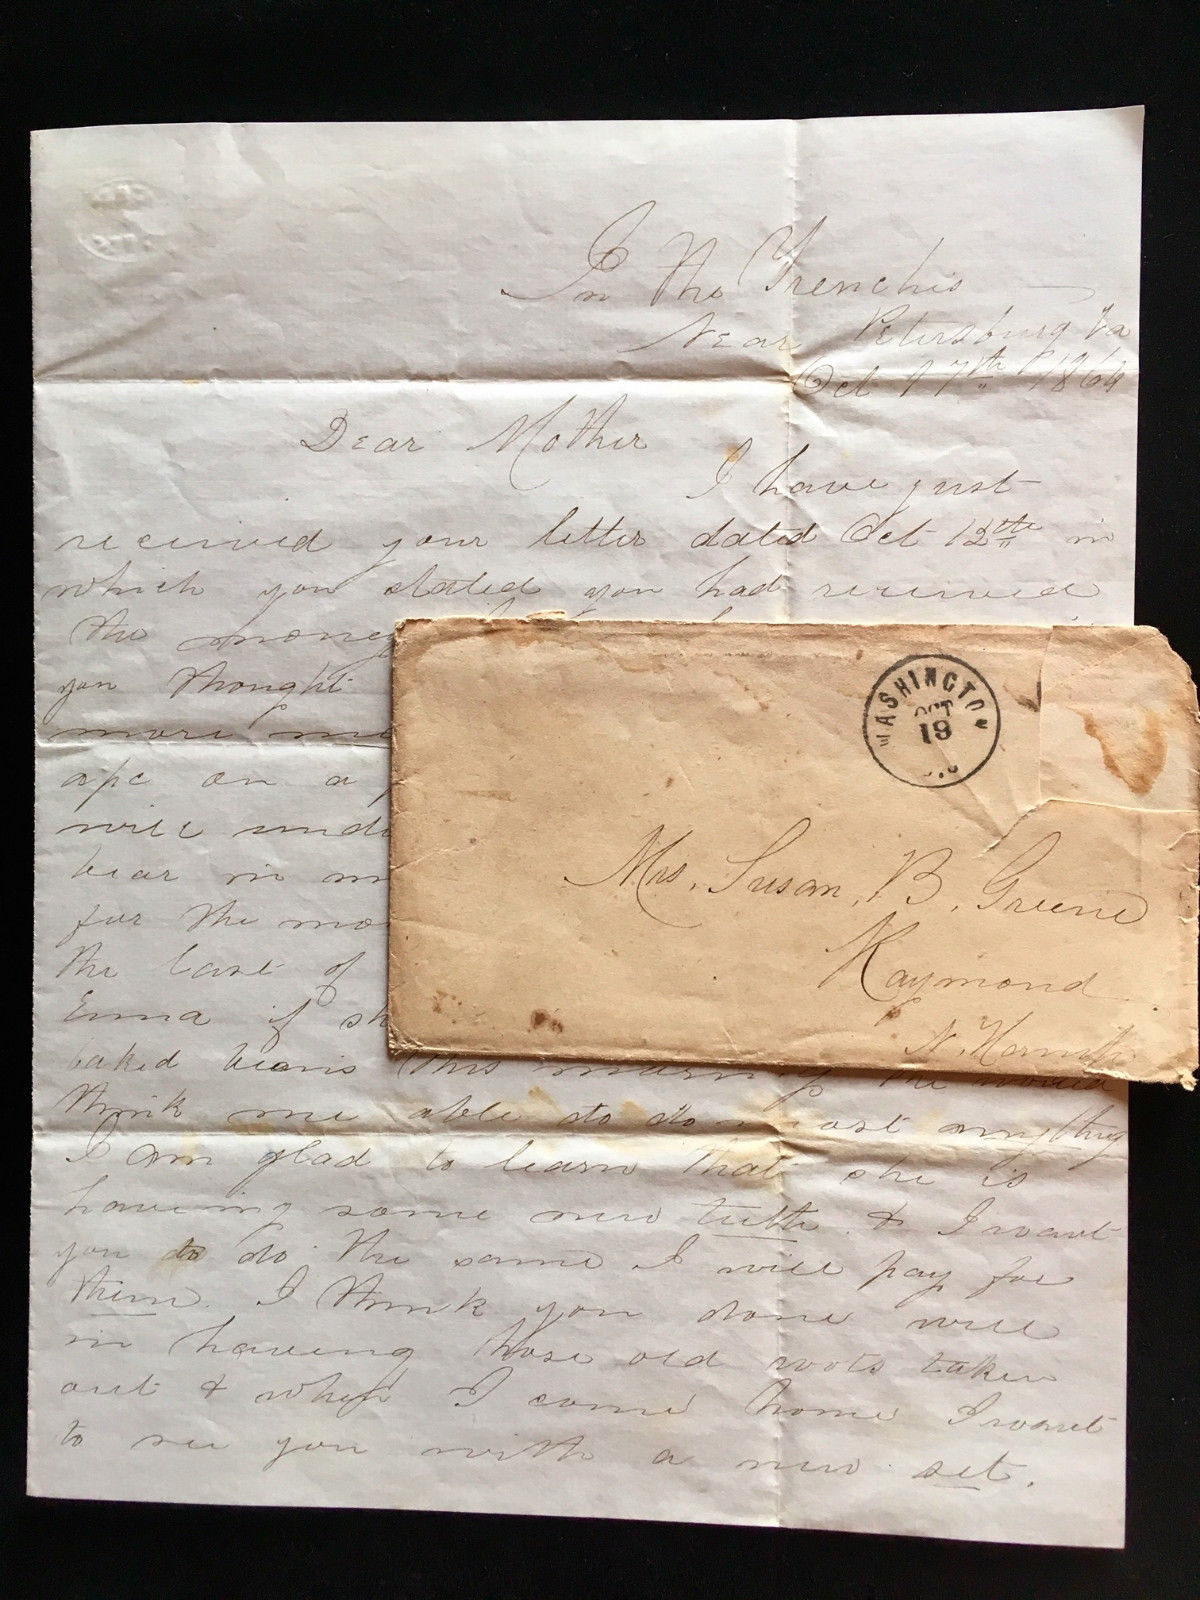 In the Trenchis
Near Petersburg Va
Oct 17th 1864
Dear Mother
I have just
received your letter dated Oct 12th in
which you stated you had received
the money
you thought
more
apc on a
will
bear in
for the
the last of
Emma if
baked beans this morning she would
think me able to do most anything
I am glad to learn that she is
haveing some new teeth & I want
you to do the same I will pay for
them. I think you done well
in having those old roots taken
out & when I come home I want
to see you with a new set.
WASHINGTON
OCT
19
D.C
Mrs. Susan, B, Greene
Raymond
N. Hamsh